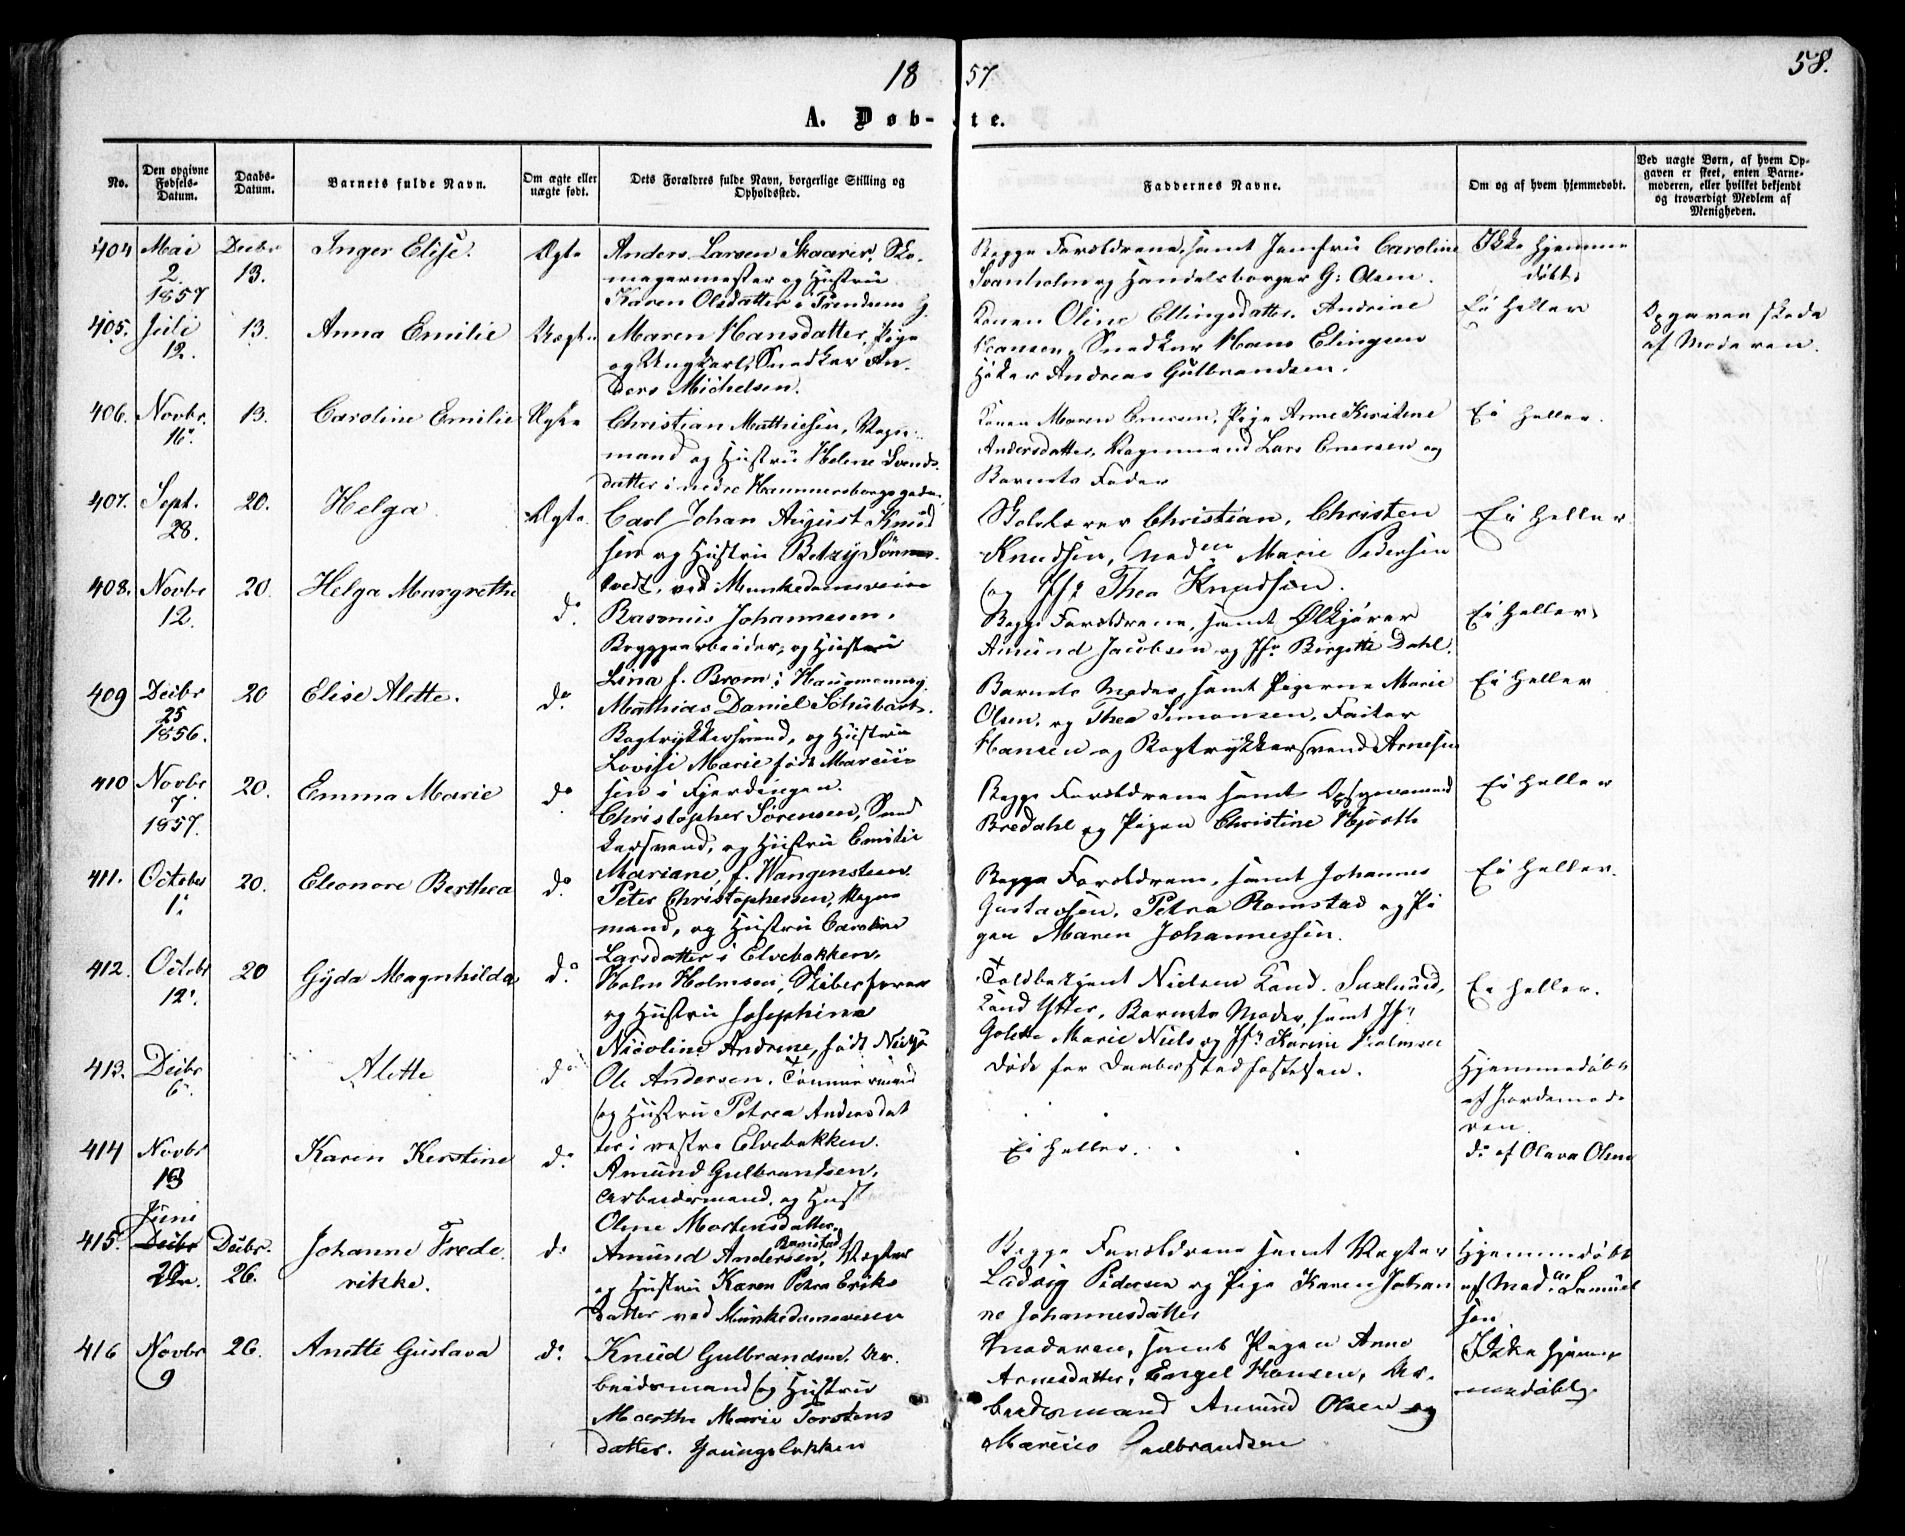 1857
58.
A. Døbte.
No.
Den opgivne Fødsels-Datum.
Daabs-Datum.
Barnets fulde Navn.
Om ægte eller uægte født.
Dets Forældres fulde Navn, borgerlige Stilling og Opholdssted.
Faddernes Navne.
Om og af hvem hjemmedøbt.
Ved uægte Børn, af hvem Opgaven er skeet, enten Barnemoderen, eller hvilket bekjendt og troværdigt Medlem af Menigheden.
404 Mai 2. 1857 Decbr 13. Inger Elise. Ægte
Anders Larsen Skaarer, Sko-
magermester og Hustru
Karen Olsdatter i
Begge Forældrene, samt Jomfru Caroline
Svanholm og Handelsborger G: Olsen.
Ikke hjemme
døbt.
405. Juli 12. 13. Anna Emilie Uægte
Maren Hansdatter, Pige
og Ungkarl, Snedker An-
ders Michelsen.
Konen Oline Ellingsdatter, Andrine
Hansen, Snedker Hans Elingsen
Høker Andreas Gulbrandsen.
Ei heller
Opgaven skede
af Moderen.
406. Novbr. 16. 13. Caroline Emilie Ægte
Christian Mathiesen, Vogn-
mand og Hustru Helene Svends-
datter i nedre Hammersborggaden.
Konen Maren Enersen, Pige Anne Kirstine
Andersdatter, Vognmand Lars Enersen og
Barnets Fader
Ei heller.
407. Sept. 28. 20. Helga. Ægte.
Carl Johan August Knud
sen og Hustru Betzy Sønne-
tvedt, ved Munkedamsveien
Skolelærer Christian, Christen
Knudsen, Madm Marie Pedersen
og Jfr Thea Knudsen.
Ei heller
408. Novbr 12. 20. Helga Margrethe do
Rasmus Johannesen,
Bryggearbeider, og Hustru
Lina f. Brom i Hausmannsg.
Begge Forældrene, samt Ølkjører
Amund Jacobsen og Jfr Birgitte Dahl.
Ei heller
409 Decbr 25 1856. 20 Elise Alette. do
Mathias Daniel Schubart.
Bogtrykkersvend, og Hustru
Lovise Marie født Marcus
sen i Fjerdingen.
Barnets Moder, samt Pigerne Marie
Olsen, og Thea Simonsen,
Hansen og Bogtrykkersvend Arnesen
Ei heller
410 Novbr 7. 1857. 20. Emma Marie do
Christopher Sørensen, Sned
kersvend, og Hustru Emilie
Mariane, f. Wangensteen.
Begge Forældrene samt Opsynsmand
Bredahl og Pigen Christine Hjorth
Ei heller
411. October 1. 20. Eleonore Berthea do
Peter Christophersen, Vogn
mand, og Hustru Caroline
Larsdatter i Elvebakken.
Begge Forældrene, samt Johannes
Gustavsen, Petra Romstad og Pi
gen Maren Johannessen.
Ei heller.
412. Octobr 12. 20 Gyda Magnhilda do
Holm Holmsen, Skibsfører
og Hustru Josephine
Nicoline Andrine, født
Toldbetjent Nielsen Cand.
Cand Ytter, Barnets Moder, samt Jfr
Marie Niels og Jfr Karine Holmsen
Ei heller.
413. Decbr 6. Alette do
Ole Andersen, Tømmermand
og Hustru Petrea Andersdat
ter i vestre Elvebakken.
Døde før Daabsstadfæstelsen.
Hjemmedøbt
af Jordemode
ren.
414 Novbr 13 Karen Kerstine do
Amund Gulbrandsen,
Arbeidsmand, og Hust
Oline Mortensdatter.
Ei heller.
do af Olava Olsen
415. Juni Decbr 26. Johanne Frede
rikke. do
Amund Andersen, Romstad Vægter
og Hustru Karen Petra Eriks
datter ved Munkedamsveien
Begge Forældrene samt Vægter
Ludvig Pedersen og Pige Karen Johan
ne Johannesdatter
Hjemmedøbt
af Mad. Samuel
sen
416 Novbr 9 26. Anette Gustava do
Knud Gulbrandsen, Ar-
beidsmand og Hustru
Marthe Marie Torstens
datter. Youngsløkken
Moderen, samt Pigen Anne
Arnesdatter, Engel Hansen, Ar-
beidsmand Amund Olsen og
Marcus Gulbrandsen
Ikke hjem-
medøbt.